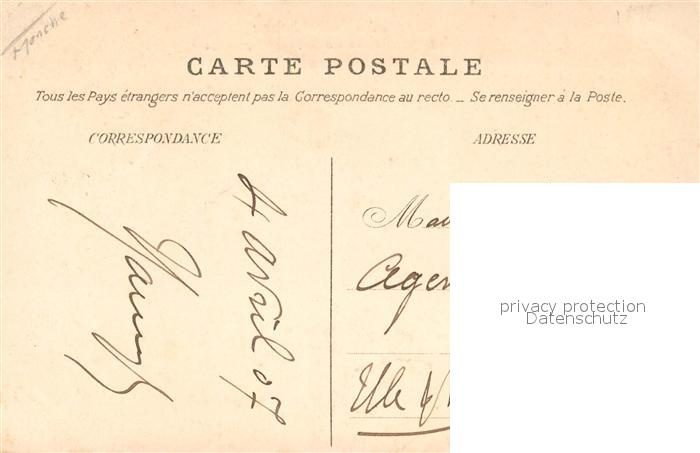 Manche
CARTE POSTALE
Tous les Pays étrangers n'acceptent pas la Correspondance au recto. _ Se renseigner à la Poste.
CORRESPONDANCE
ADRESSE
4 avril 07
Ma
Agen
Ille
privacy protection
Datenschutz